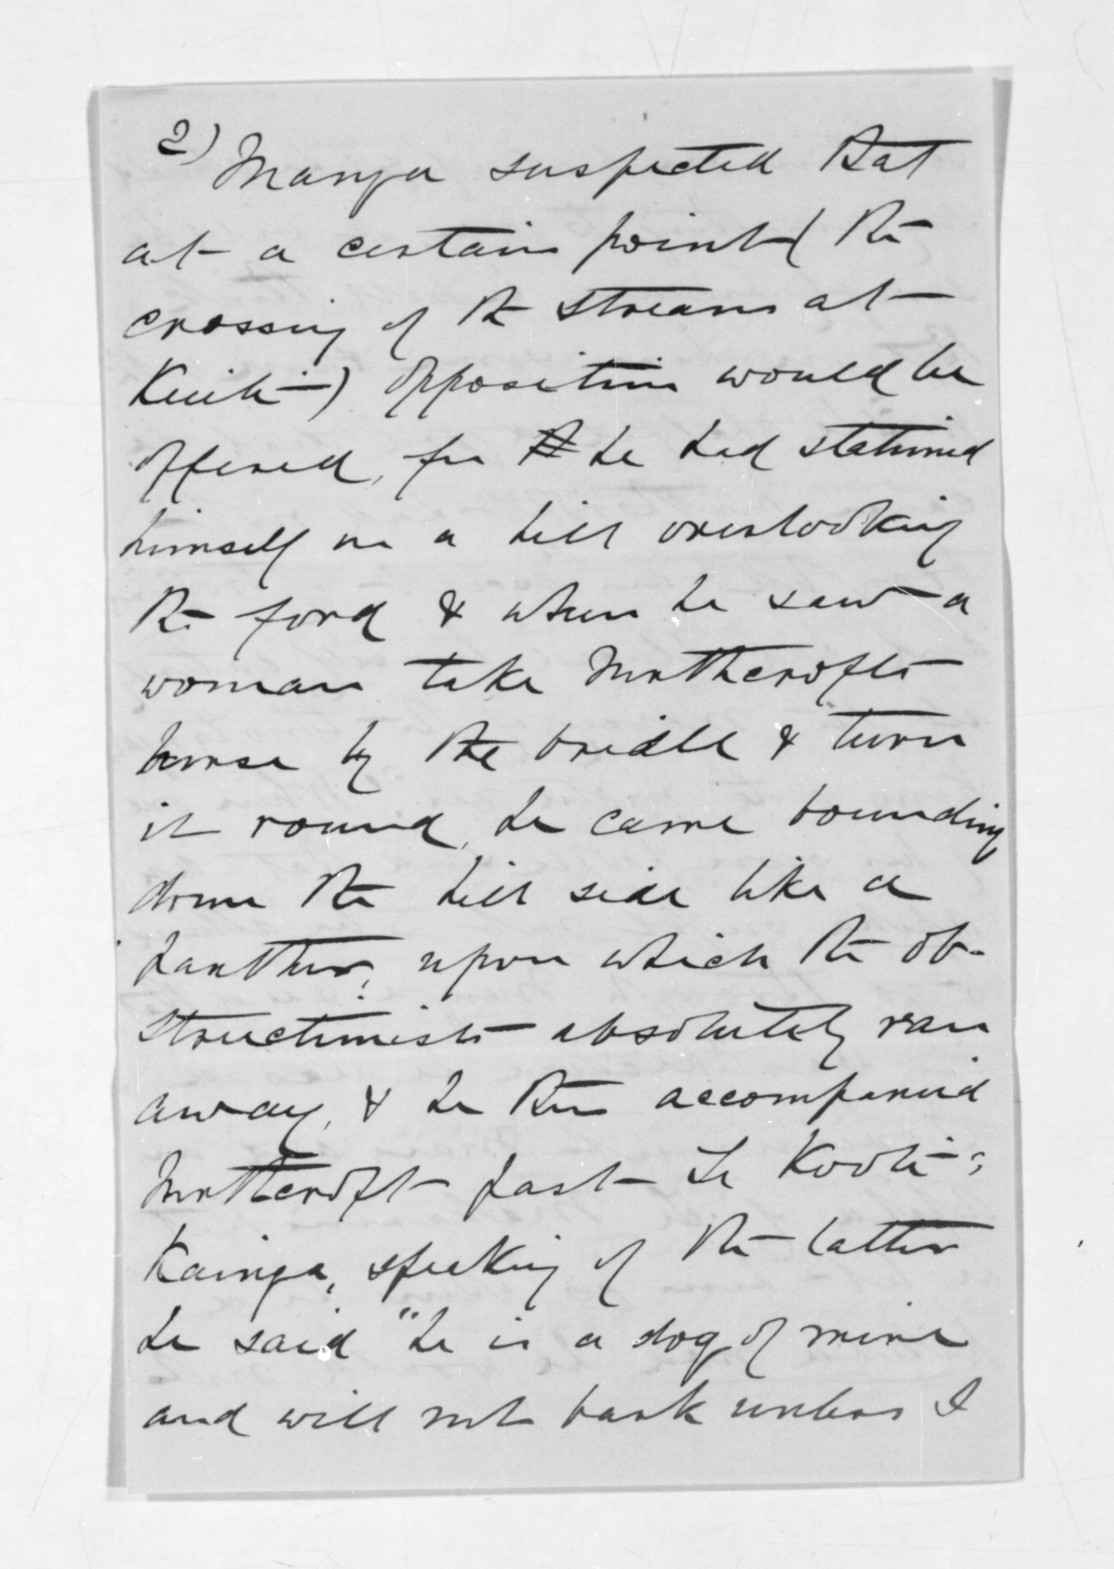 2) Manga suspected that
at a certain point (the
crossing of the stream at
Kuiti) opposition would be
offered, for he had stationed
himself on a hill overlooking
the ford & when he saw a
woman take Northcrofts
horse by the bridle & turn
it round, he came bounding
down the hill side like a
panther, upon which the ob-
structionists absolutely ran
away, & he then accompanied
Northcroft past Te Kooti's
Kainga, speaking of the latter
he said "he is a dog of mine
and will not bark unless I